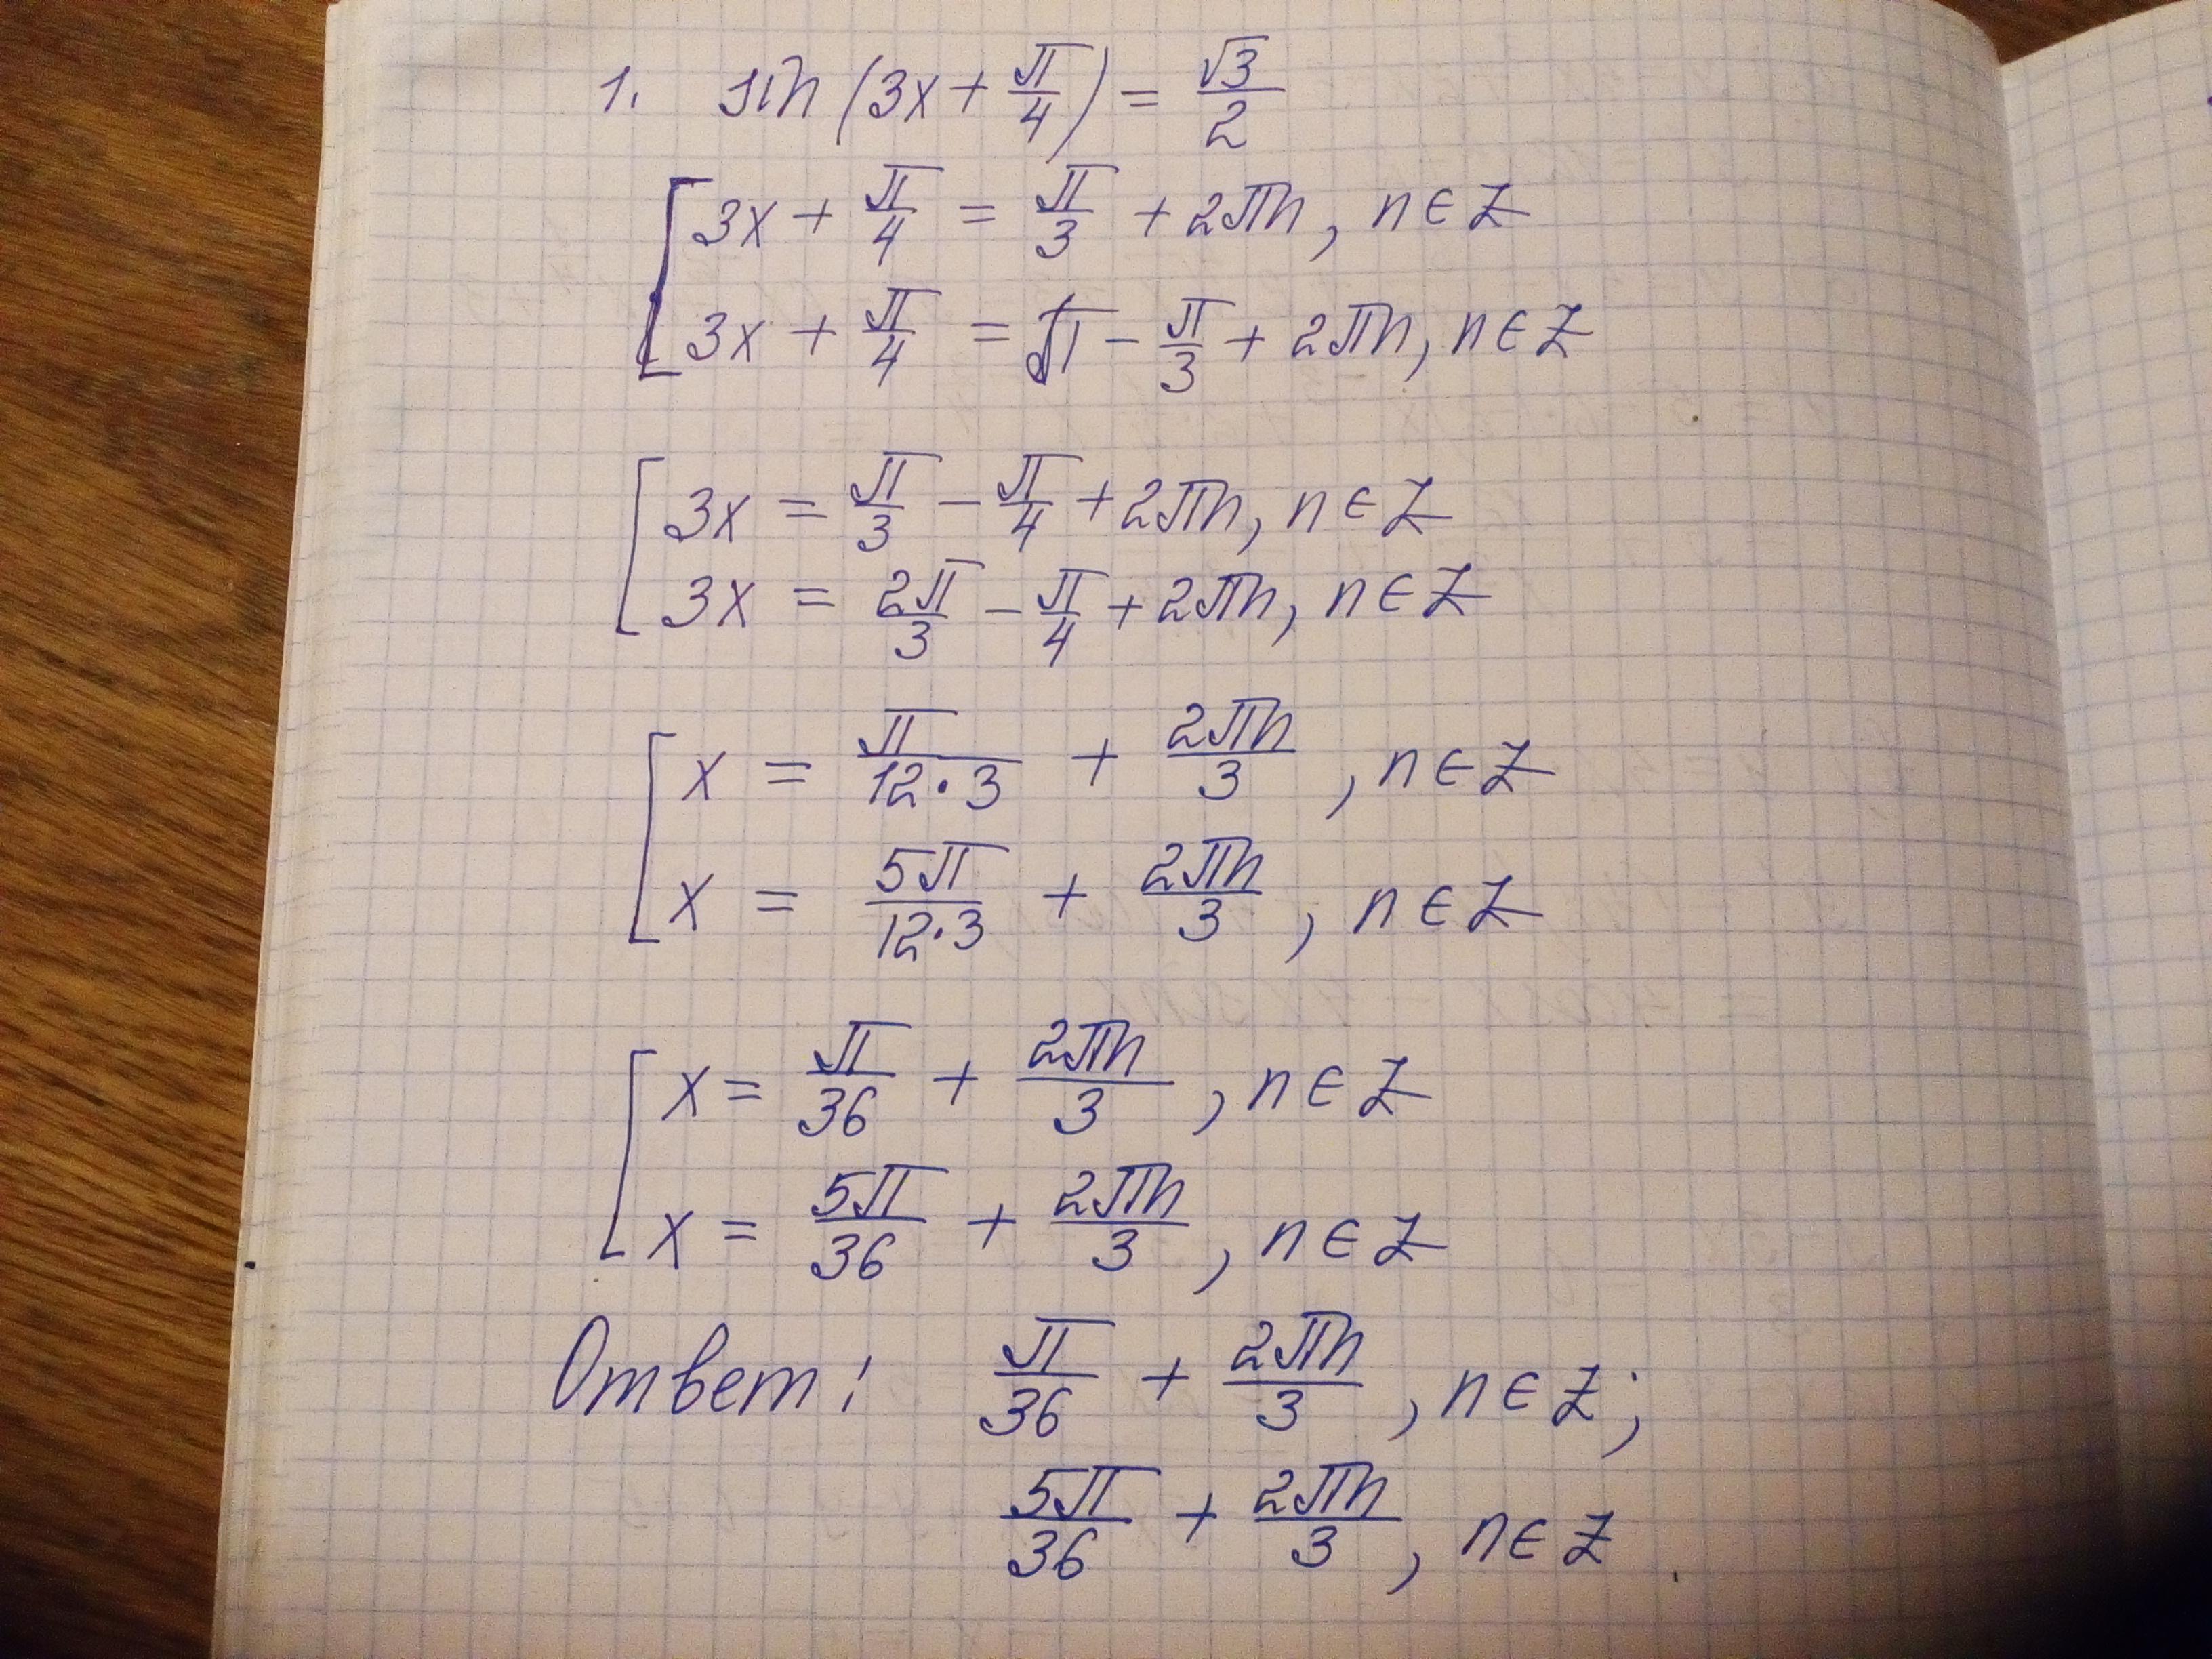 1. sin(3x + π/4) = √3/2
[3x + π/4 = π/3 + 2πn, n ∈ Z
[3x + π/4 = π - π/3 + 2πn, n ∈ Z
[3x = π/3 - π/4 + 2πn, n ∈ Z
[3x = 2π/3 - π/4 + 2πn, n ∈ Z
[x = π/(12·3) + 2πn/3, n ∈ Z
[x = 5π/(12·3) + 2πn/3, n ∈ Z
[x = π/36 + 2πn/3, n ∈ Z
[x = 5π/36 + 2πn/3, n ∈ Z
Ответ: π/36 + 2πn/3, n ∈ Z;
5π/36 + 2πn/3, n ∈ Z